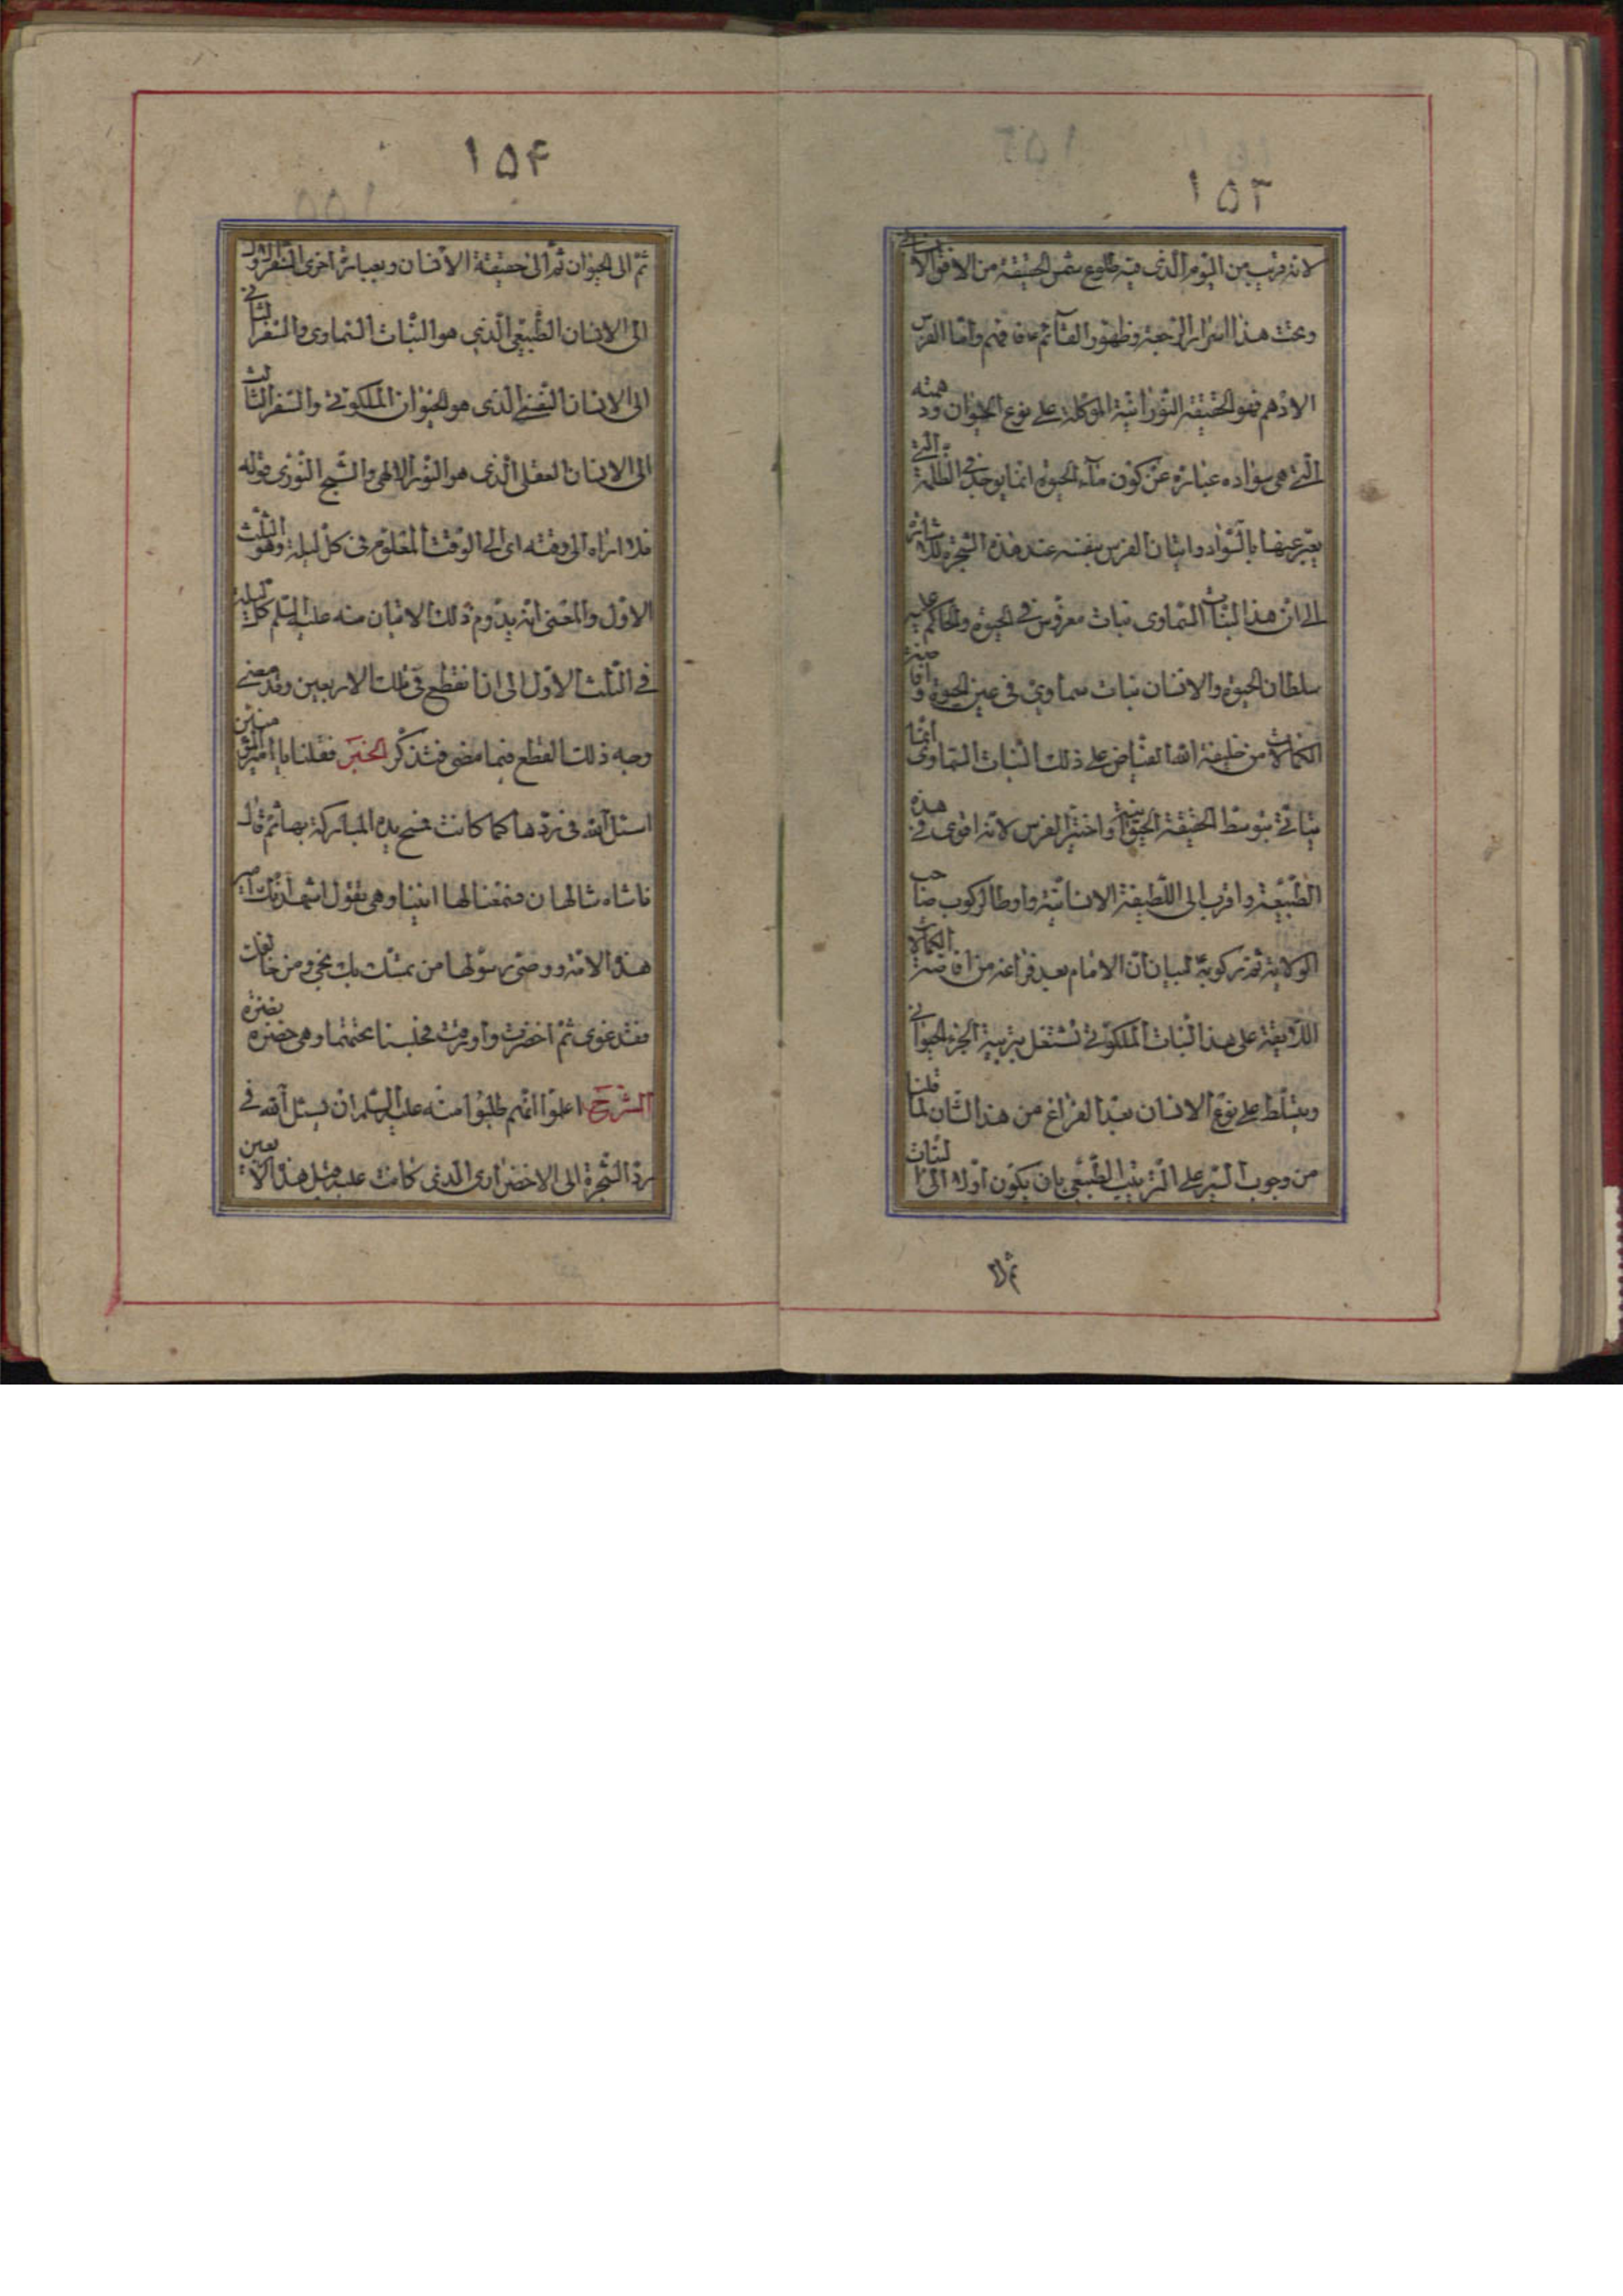 ١٥٣
لانه قريب من اليوم الذى فيه طلوع شمس الحقيقة من الافق الانسانى
وتحت هذا اسرار الرجعة وظهور القائم ع فافهم واما الفرس
الادهم فهو الحقيقة النورانية الموكلة على نوع الحيوان ودهمته
التى هى سواده عبارة عن كون ماء الحيوة انما يوجد فى الظلمة التى
يعبر عنها بالسواد واتيان الفرس بنفسه عند هذه الشجرة للاشارة
الى ان هذا النبات السماوى نبات مغروس فى الحيوة والحاكم عليه
سلطان الحيوة والانسان نبات سماوى فى عين الحيوة وافاضة
الكمالات من خليفة الله الفياض على ذلك النبات السماوى انما
يتاتى بتوسط الحقيقة الحيوانية واختير الفرس لانه اقوى فى هذه
الطبيعة واقرب الى اللطيفة الانسانية واوطا لركوب صاحب
الولاية ثم ركوبه لبيان ان الامام بعد فراغه من افاضة الكمالات
اللايقة على هذا النبات الملكوتى تشتغل بتربية الجزء الحيوانى
ويتسلط على نوع الانسان بعد الفراغ من هذا الشان لما قلنا
من وجوب السير على الترتيب الطبيعى بان يكون اولا الى النبات
ثم الى
١٥۴
ثم الى الحيوان ثم الى حقيقة الانسان وبعبارة اخرى السفر الاول
الى الانسان الطبيعى الذى هو النبات السماوى والسفر الثانى
الى الانسان النفسى الذى هو الحيوان الملكوتى والسفر الثالث
الى الانسان العقلى الذى هو النور الالهى والشبح النورى قوله
فلا ازاه الى وقته اى الى الوقت المعلوم فى كل ليلة وهو الثلث
الاول والمعنى انه يدوم ذلك الاتيان منه عليه السلم كل ليلة
فى الثلث الاول الى ان انقطع فى تلك الاربعين وقد مضى
وجه ذلك القطع فيما مضى فتذكر الخبر فقلنا يا امير المؤمنين
اسئل الله فى ردها كما كانت فمسح يده المباركة بها ثم قال
فاشاه شالهان فسمعنا لها انينا وهى تقول اشهد انك امير
هذه الامة ووصى رسولها من تمسك بك نجى ومن خالفك
فقد غوى ثم اخضرت واورقت فجلسنا تحتها وهى خضرة نضرة
الشرح اعلموا انهم طلبوا منه عليه السلم ان يسئل الله فى
رد الشجرة الى الاخضرار الذى كانت عليه قبل هذه الاربعين